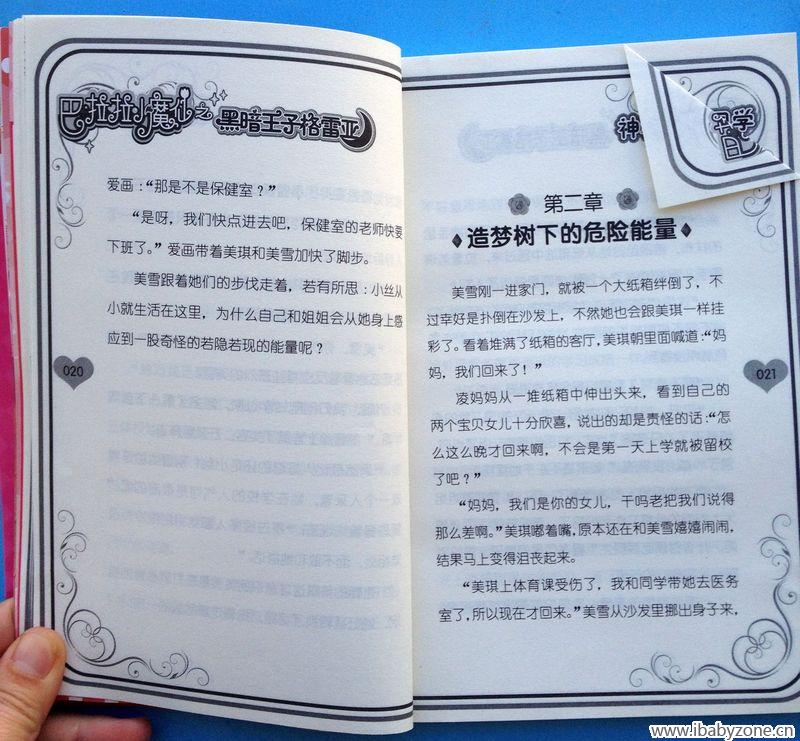 巴拉拉小魔仙之
黑暗王子格雷亚
爱画：“那是不是保健室？”
“是呀，我们快点进去吧，保健室的老师快要
下班了。”爱画带着美琪和美雪加快了脚步。
美雪跟着她们的步伐走着，若有所思：小丝从
小就生活在这里，为什么自己和姐姐会从她身上感
应到一股奇怪的若隐若现的能量呢？
020
神
学
日
第二章
造梦树下的危险能量
美雪刚一进家门，就被一个大纸箱绊倒了，不
过幸好是扑倒在沙发上，不然她也会跟美琪一样挂
彩了。看着堆满了纸箱的客厅，美琪朝里面喊道：“妈
妈，我们回来了！”
凌妈妈从一堆纸箱中伸出头来，看到自己的
两个宝贝女儿十分欣喜，说出的却是责怪的话：“怎
么这么晚才回来啊，不会是第一天上学就被留校
了吧？”
“妈妈，我们是你的女儿，干吗老把我们说得
那么差啊。”美琪嘟着嘴，原本还在和美雪嬉嬉闹闹，
结果马上变得沮丧起来。
“美琪上体育课受伤了，我和同学带她去医务
室了，所以现在才回来。”美雪从沙发里挪出身子来，
021
www.ibabyzone.cn